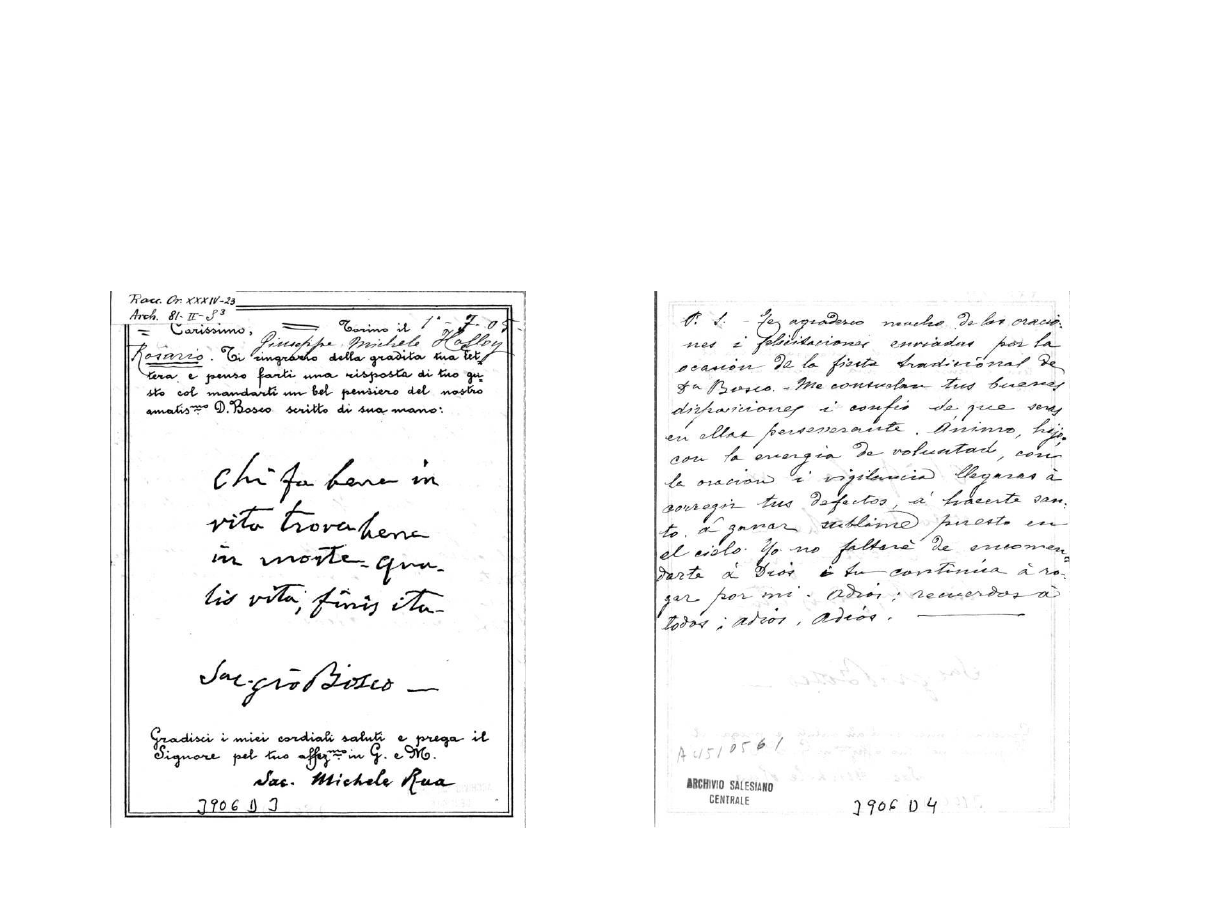 Racc. Or. XXXIV-23
Arch. 81-II-S³
= Carissimo, = Torino il 1°-7-05-
Giuseppe Michele
Rosario. Ti ringrazio della gradita tua let-
tera e penso farti una risposta di tuo gu-
sto col mandarti un bel pensiero del nostro
amatis.mo D. Bosco scritto di sua mano:
Chi fa bene in
vita trova bene
in morte. qua-
lis vita, finis ita-
Sac. Gio Bosco —
Gradisci i miei cordiali saluti e prega il
Signore pel tuo affez.mo in G. e M.
Sac. Michele Rua
3906 D 3
P. S. - Te agradezco mucho de las oracio-
nes i felicitaciones enviadas por la
ocasión de la fiesta tradicional de
Dn Bosco. - Me consuelan tus buenas
disposiciones i confio de que seras
en ellas perseverante. Ánimo, hijo,
con la energia de voluntad, con
la oracion i vigilancia llegaras à
corregir tus defectos, á hacerte san-
to. á ganar sublime puesto en
el cielo. Yo no faltaré de encomen-
darte á Dios i tu continúa à ro-
gar por mi. Adiós; recuerdos à
todos; adios, adiós.
A4510561
ARCHIVIO SALESIANO
CENTRALE
3906 D 4